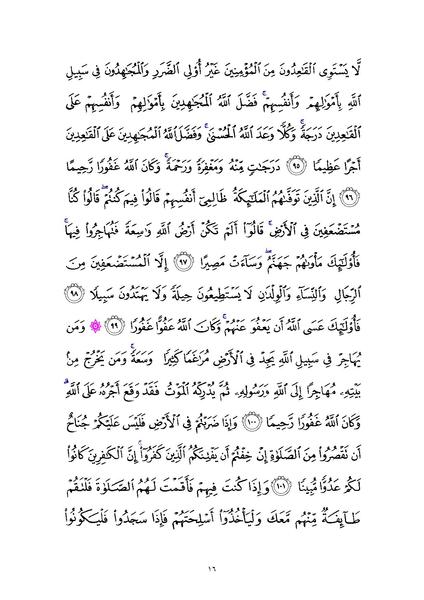 لَّا يَسْتَوِى الْقَٰعِدُونَ مِنَ الْمُؤْمِنِينَ غَيْرُ أُوْلِى الضَّرَرِ وَالْمُجَٰهِدُونَ فِى سَبِيلِ
اللَّهِ بِأَمْوَٰلِهِمْ وَأَنفُسِهِمْ ۚ فَضَّلَ اللَّهُ الْمُجَٰهِدِينَ بِأَمْوَٰلِهِمْ وَأَنفُسِهِمْ عَلَى
الْقَٰعِدِينَ دَرَجَةً ۚ وَكُلًّا وَعَدَ اللَّهُ الْحُسْنَىٰ ۚ وَفَضَّلَ اللَّهُ الْمُجَٰهِدِينَ عَلَى الْقَٰعِدِينَ
أَجْرًا عَظِيمًا ۝٩٥ دَرَجَٰتٍ مِّنْهُ وَمَغْفِرَةً وَرَحْمَةً ۚ وَكَانَ اللَّهُ غَفُورًا رَّحِيمًا
۝٩٦ إِنَّ الَّذِينَ تَوَفَّىٰهُمُ الْمَلَٰٓئِكَةُ ظَالِمِىٓ أَنفُسِهِمْ قَالُوا۟ فِيمَ كُنتُمْ ۖ قَالُوا۟ كُنَّا
مُسْتَضْعَفِينَ فِى الْأَرْضِ ۚ قَالُوٓا۟ أَلَمْ تَكُنْ أَرْضُ اللَّهِ وَٰسِعَةً فَتُهَاجِرُوا۟ فِيهَا ۚ
فَأُو۟لَٰٓئِكَ مَأْوَىٰهُمْ جَهَنَّمُ ۖ وَسَآءَتْ مَصِيرًا ۝٩٧ إِلَّا الْمُسْتَضْعَفِينَ مِنَ
الرِّجَالِ وَالنِّسَآءِ وَالْوِلْدَٰنِ لَا يَسْتَطِيعُونَ حِيلَةً وَلَا يَهْتَدُونَ سَبِيلًا ۝٩٨
فَأُو۟لَٰٓئِكَ عَسَى اللَّهُ أَن يَعْفُوَ عَنْهُمْ ۚ وَكَانَ اللَّهُ عَفُوًّا غَفُورًا ۝٩٩ ۞ وَمَن
يُهَاجِرْ فِى سَبِيلِ اللَّهِ يَجِدْ فِى الْأَرْضِ مُرَٰغَمًا كَثِيرًا وَسَعَةً ۚ وَمَن يَخْرُجْ مِنۢ
بَيْتِهِۦ مُهَاجِرًا إِلَى اللَّهِ وَرَسُولِهِۦ ثُمَّ يُدْرِكْهُ الْمَوْتُ فَقَدْ وَقَعَ أَجْرُهُۥ عَلَى اللَّهِ ۗ
وَكَانَ اللَّهُ غَفُورًا رَّحِيمًا ۝١٠٠ وَإِذَا ضَرَبْتُمْ فِى الْأَرْضِ فَلَيْسَ عَلَيْكُمْ جُنَاحٌ
أَن تَقْصُرُوا۟ مِنَ الصَّلَوٰةِ إِنْ خِفْتُمْ أَن يَفْتِنَكُمُ الَّذِينَ كَفَرُوٓا۟ ۚ إِنَّ الْكَٰفِرِينَ كَانُوا۟
لَكُمْ عَدُوًّا مُّبِينًا ۝١٠١ وَإِذَا كُنتَ فِيهِمْ فَأَقَمْتَ لَهُمُ الصَّلَوٰةَ فَلْتَقُمْ
طَآئِفَةٌ مِّنْهُم مَّعَكَ وَلْيَأْخُذُوٓا۟ أَسْلِحَتَهُمْ فَإِذَا سَجَدُوا۟ فَلْيَكُونُوا۟
١٦